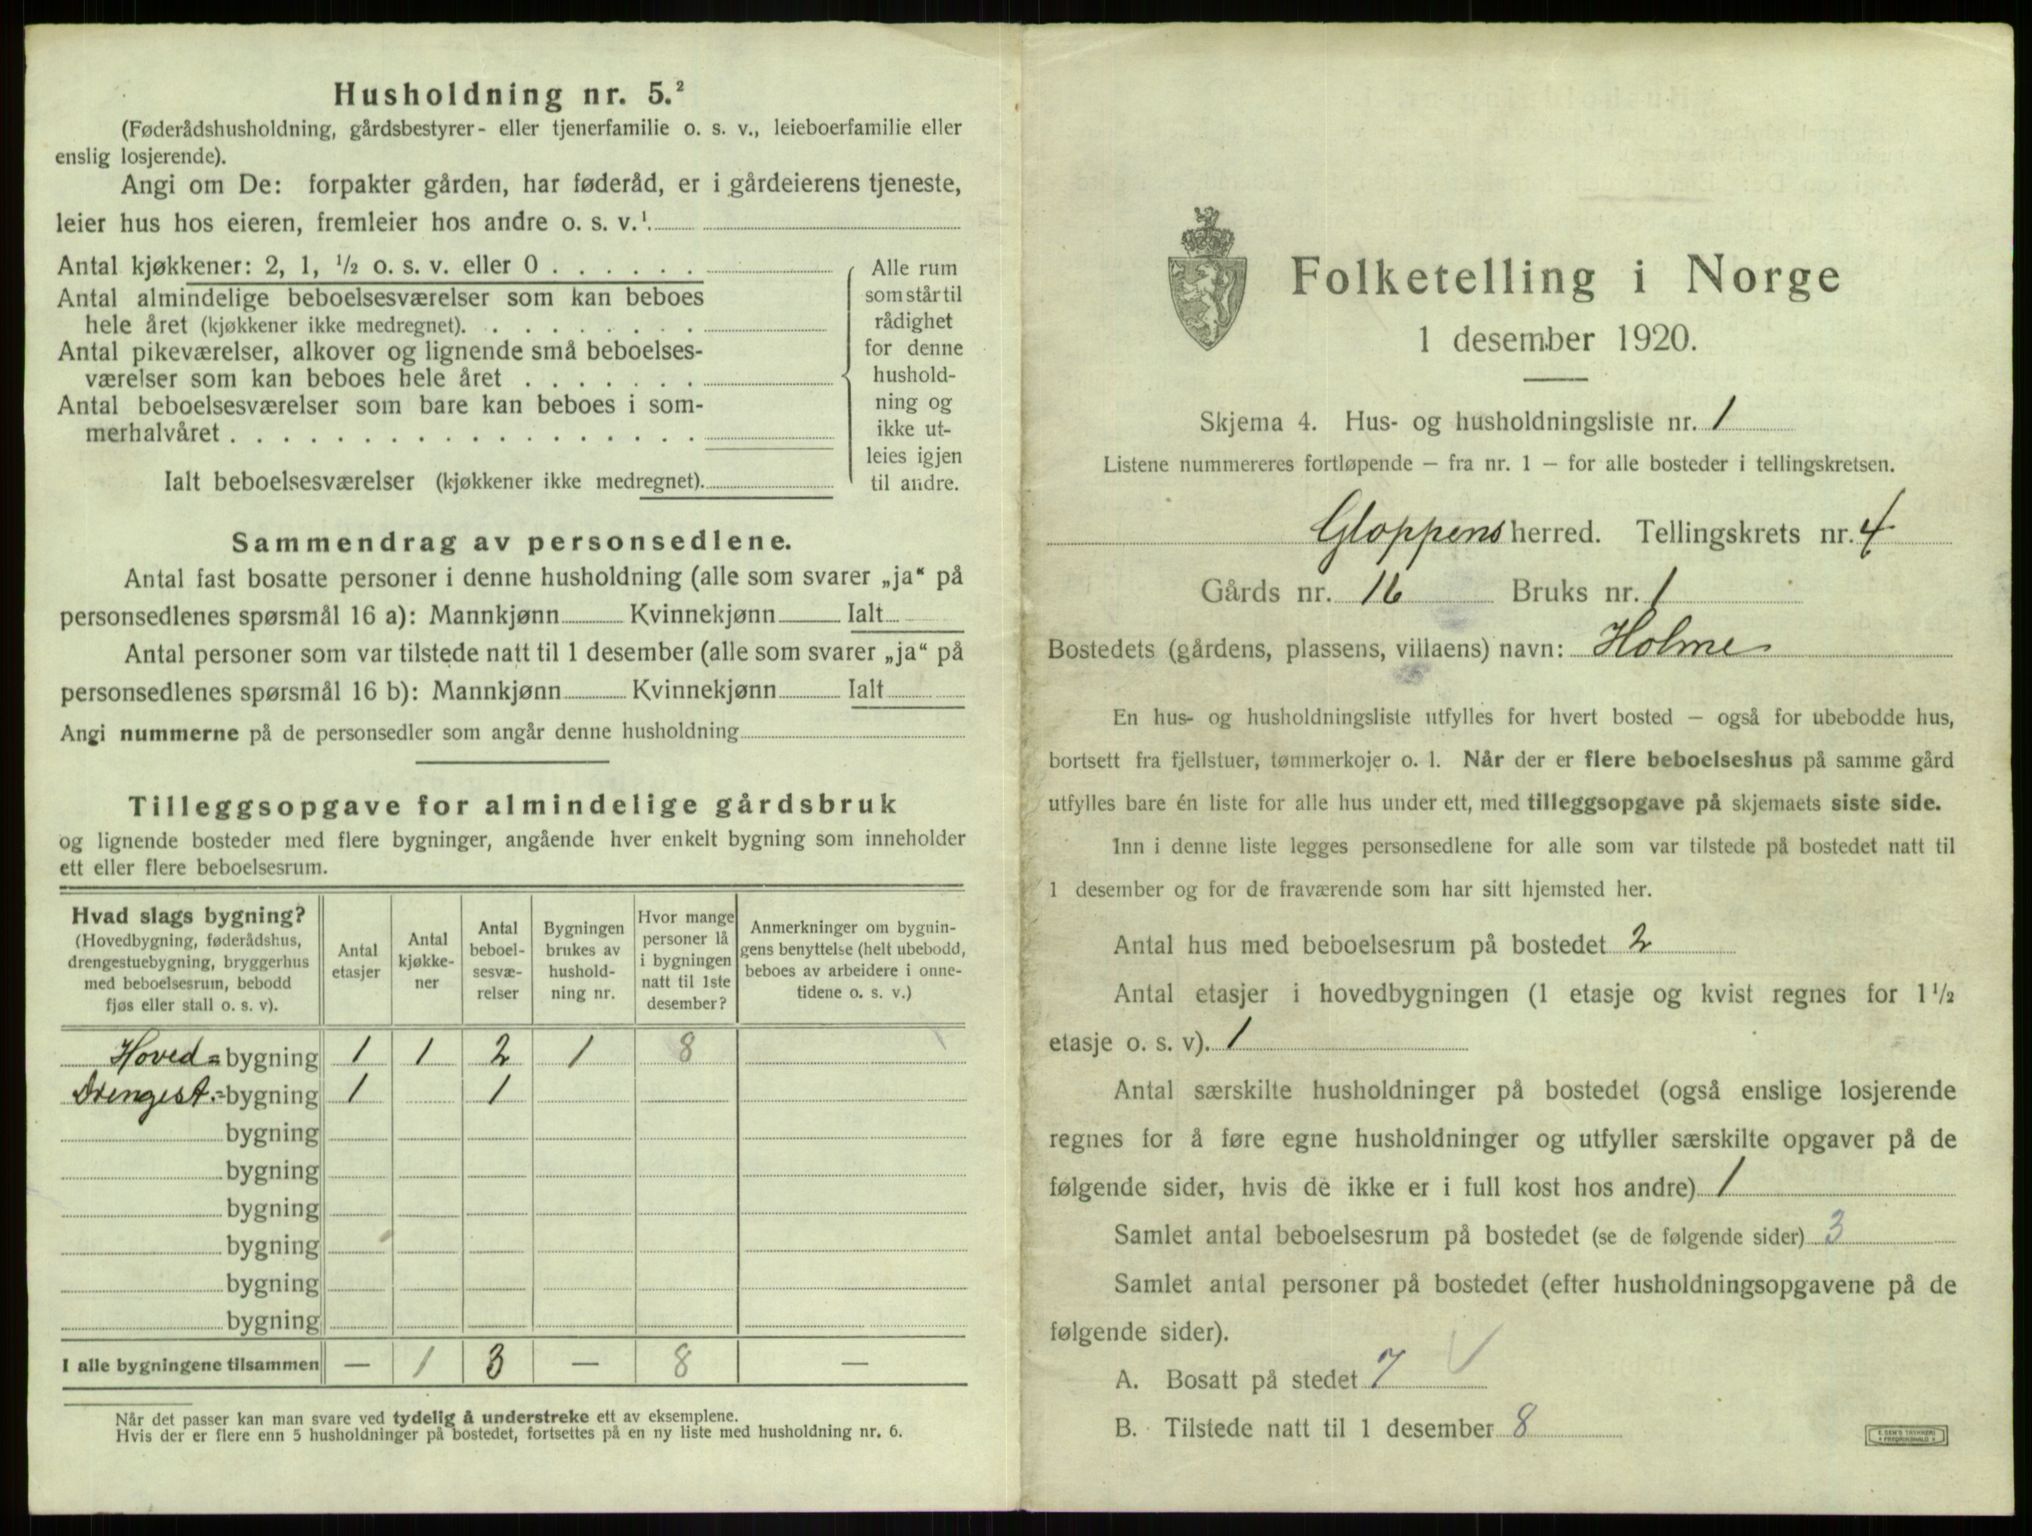 Husholdning nr. 5.²
(Føderådshusholdning, gårdsbestyrer- eller tjenerfamilie o. s. v., leieboerfamilie eller
enslig losjerende).
Angi om De: forpakter gården, har føderåd, er i gårdeierens tjeneste,
leier hus hos eieren, fremleier hos andre o. s. v.¹
Antal kjøkkener: 2, 1, ½ o. s. v. eller 0 . . . . . .
Antal almindelige beboelsesværelser som kan beboes
hele året (kjøkkener ikke medregnet). . . . . . . . .
Antal pikeværelser, alkover og lignende små beboelses-
værelser som kan beboes hele året . . . . . . .
Antal beboelsesværelser som bare kan beboes i som-
merhalvåret . . . . . . . . . . . . . . . . . .
Ialt beboelsesværelser (kjøkkener ikke medregnet).
Alle rum
som står til
rådighet
for denne
hushold-
ning og
ikke ut-
leies igjen
til andre.
Sammendrag av personsedlene.
Antal fast bosatte personer i denne husholdning (alle som svarer „ja“ på
personsedlenes spørsmål 16 a): Mannkjønn Kvinnekjønn Ialt
Antal personer som var tilstede natt til 1 desember (alle som svarer „ja“ på
personsedlenes spørsmål 16 b): Mannkjønn Kvinnekjønn Ialt
Angi nummerne på de personsedler som angår denne husholdning
Tilleggsopgave for almindelige gårdsbruk
og lignende bosteder med flere bygninger, angående hver enkelt bygning som inneholder
ett eller flere beboelsesrum.
Hvad slags bygning?
(Hovedbygning, føderådshus,
drengestuebygning, bryggerhus
med beboelsesrum, bebodd
fjøs eller stall o. s. v).
Antal
etasjer
Antal
kjøkke-
ner
Antal
beboel-
sesvæ-
relser
Bygningen
brukes av
hushold-
ning nr.
Hvor mange
personer lå
i bygningen
natt til 1ste
desember?
Anmerkninger om bygnin-
gens benyttelse (helt ubebodd,
beboes av arbeidere i onne-
tidene o. s. v.)
Hoved=bygning 1 1 2 1 8
Drengest.=bygning 1 1
bygning
bygning
bygning
bygning
bygning
bygning
I alle bygningene tilsammen — 1 3 — 8 —
Når det passer kan man svare ved tydelig å understreke ett av eksemplene.
Hvis der er flere enn 5 husholdninger på bostedet, fortsettes på en ny liste med husholdning nr. 6.
Folketelling i Norge
1 desember 1920.
Skjema 4. Hus- og husholdningsliste nr. 1
Listene nummereres fortløpende – fra nr. 1 – for alle bosteder i tellingskretsen.
Gloppens herred. Tellingskrets nr. 4
Gårds nr. 16 Bruks nr. 1
Bostedets (gårdens, plassens, villaens) navn: Holme
En hus- og husholdningsliste utfylles for hvert bosted – også for ubebodde hus,
bortsett fra fjellstuer, tømmerkojer o. l. Når der er flere beboelseshus på samme gård
utfylles bare én liste for alle hus under ett, med tilleggsopgave på skjemaets siste side.
Inn i denne liste legges personsedlene for alle som var tilstede på bostedet natt til
1 desember og for de fraværende som har sitt hjemsted her.
Antal hus med beboelsesrum på bostedet 2
Antal etasjer i hovedbygningen (1 etasje og kvist regnes for 1½
etasje o. s. v). 1
Antal særskilte husholdninger på bostedet (også enslige losjerende
regnes for å føre egne husholdninger og utfyller særskilte opgaver på de
følgende sider, hvis de ikke er i full kost hos andre) 1
Samlet antal beboelsesrum på bostedet (se de følgende sider) 3
Samlet antal personer på bostedet (efter husholdningsopgavene på de
følgende sider).
A. Bosatt på stedet 7 √
B. Tilstede natt til 1 desember 8